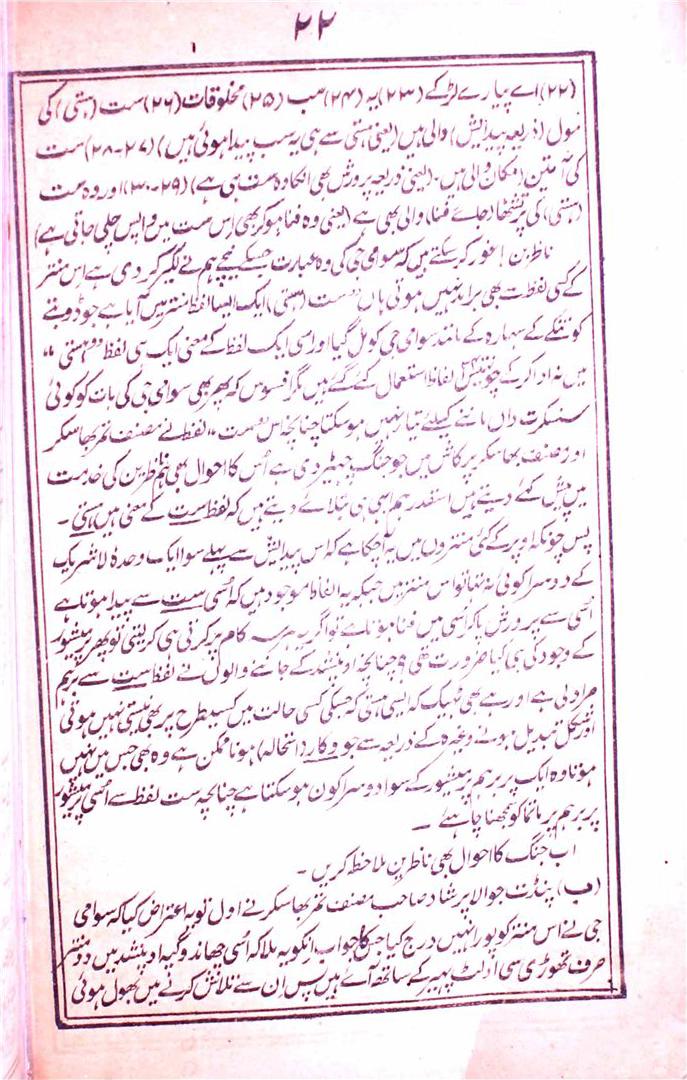 ۲۲
(۲۲) اے پیارے لڑکے (۲۳) یہ (۲۴) سب (۲۵) مخلوقات (۲۶) ست (ہستی) کی
مول (ذریعہ پیدایش) والی ہیں (یعنی ہستی سے ہی یہ سب پیدا ہوئی ہیں) (۲۷-۲۸) ست
کی آیتن (مکان والی ہیں۔ (یعنی ذریعہ پرورش بھی انکا وہ ست ہی ہے) (۲۹-۳۰) اور وہ ست
(ہستی) کی پرتشٹھا (جائے فنا) والی بھی ہے (یعنی وہ فنا ہو کر بھی اس ست میں واپس چلی جاتی ہے)
ناظرین! غور کر سکتے ہیں کہ سوامی جی کی وہ عبارت جسکے نیچے ہم نے لکیر کر دی ہے اس منتر
کے کسی لفظ سے بھی برآمد نہیں ہوتی ہاں ست (ہستی) ایک ایسا لفظ منتر میں آیا ہے جو ڈوبتے
کو تنکے کے سہارہ کے مانند سوامی جی کو مل گیا اور اسی ایک لفظ کے معنی ایک سی لفظ "ہستی"
میں نہ ادا کر کے چونتیس الفاظ استعمال کئے گئے ہیں مگر افسوس کہ پھر بھی سوامی جی کی بات کو کوئی
سنسکرت داں ماننے کیلئے تیار نہیں ہو سکتا چنانچہ اس "ست" لفظ نے مصنف تمر بھاسکر
اور مصنف بھاسکر پرکاش میں جو جنگ چھیڑ دی ہے اُس کا احوال بھی ہم ناظرین کی خدمت
میں پیش کئے دیتے ہیں اسقدر ہم ابھی ہی بتلائے دیتے ہیں کہ لفظ ست کے معنی ہیں ہستی۔
پس چونکہ اوپر کے کئی منتروں میں یہ آچکا ہے کہ اس پیدایش سے پہلے سوا ایک وحدہ لاشریک
کے دوسرا کوئی نہ تھا تو اس منتر میں جبکہ یہ الفاظ موجود ہیں کہ اُسی ست سے پیدا ہوتا ہے
اُسی سے پرورش پا کر اسی میں فنا ہو تا ہے تو اگر یہ ہر سہ کام پرکرتی ہی کر لیتی تو پھر پرمیشور
کے وجود کی ہی کیا ضرورت تھی؟ چنانچہ اوپنشد کے جاننے والوں نے لفظ ست سے برہم
مراد لی ہے اور ہے بھی ٹھیک کہ ایسی ہستی کہ جسکی کسی حالت میں کسیطرح پر بھی نیستی نہیں ہوتی
اور شکل تبدیل ہونے وغیرہ کے ذریعہ سے جو وکار (استحالہ) ہونا ممکن ہے وہ بھی جس میں نہیں
ہوتا وہ ایک پربرہم پرمیشور کے سوا دوسرا کون ہو سکتا ہے چنانچہ ست لفظ سے اُسی پرمیشور
پربرہم پرماتما کو سمجھنا چاہئے۔
اب جنگ کا احوال بھی ناظرین ملاحظہ کریں۔
(ب) پنڈت جوالا پرشاد صاحب مصنف تمر بھاسکر نے اول تو یہ اعتراض کیا کہ سوامی
جی نے اس منتر کو پورا نہیں درج کیا جس کا جواب انکو یہ ملا کہ اُسی چھاندوگیہ اوپنشد میں دو منتر
صرف تھوڑی سی اولٹ پھیر کے ساتھ آئے ہیں پس ان سے تلاش کرنے میں بھول ہوئی